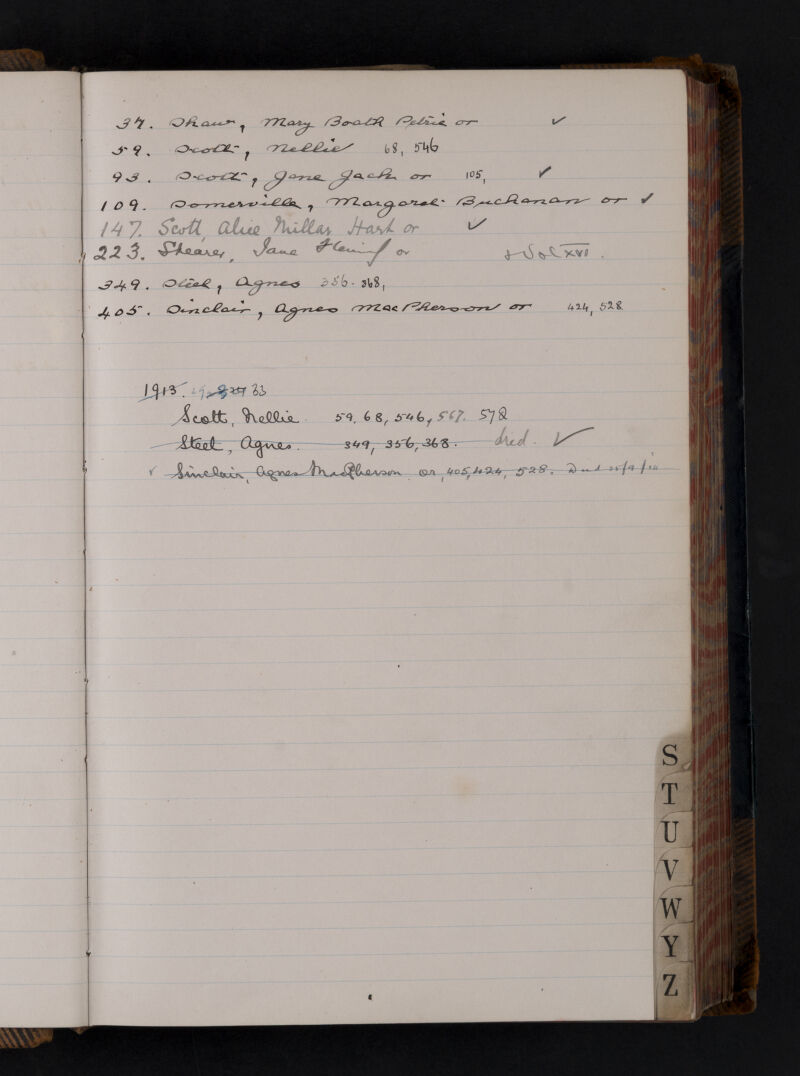 37. Shaw, Mary Booth Petrie or ✓
59. Scott, Nellie 68, 546
93. Scott, Jane Jack or 105, ✓
109. Somerville, Margaret Buchanan or ✓
147. Scott, Alice Millar Hart or ✓
223. Shearer, Jane Fleming or & Vol XVI.
349. Steel, Agnes 356. 368,
405. Sinclair, Agnes MacPherson or 424, 528
1913. 33
Scott, Nellie. 59, 68, 546, 567. 578
Steel, Agnes. 349, 356, 368. died. ✓
✓ Sinclair, Agnes MacPherson or, 405, 424, 528. Died
S
T
U
V
W
Y
Z